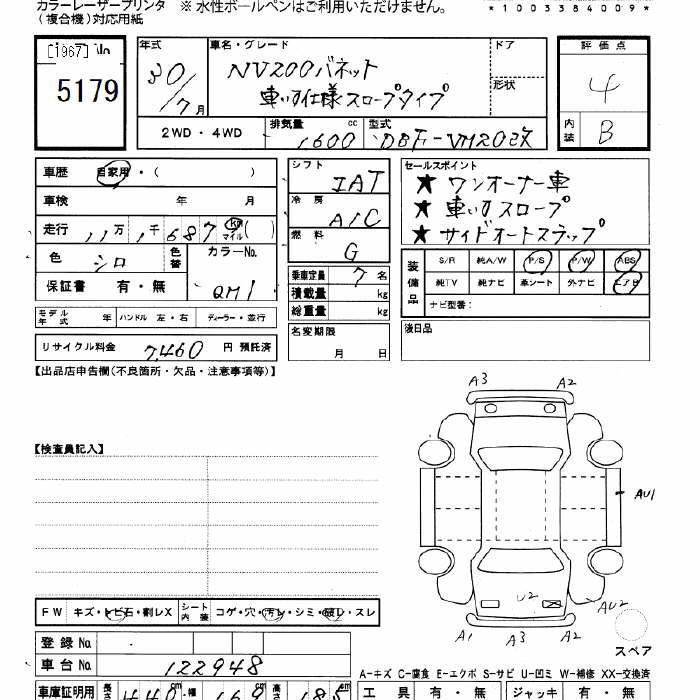 カラーレーザープリンタ ※ 水性ボールペンはご利用いただけません。
(複合機)対応用紙
*1003384009*
[1967] No
5179
年式 車名・グレード ドア
30/7月 NV200バネット
車いす仕様スロープタイプ 形状
2WD・4WD 排気量 1600 cc 型式 DBF-VM20改
評価点
4
内装 B
車歴 自家用・( )
車検 年 月
走行 11万 1千687 km マイル ( )
色 シロ 色替 カラーNo.
保証書 有・無 QM1
モデル年式 年 ハンドル 左・右 ディーラー・並行
リサイクル料金 7,460 円 預託済
シフト IAT
冷房 A/C
燃料 G
乗車定量 7 名
積載量 kg
総重量 kg
名変期限
月 日
セールスポイント
★ ワンオーナー車
★ 車いすスロープ
★ サイドオートステップ
装備品 S/R 純A/W P/S P/W ABS
純TV 純ナビ 革シート 外ナビ エアB
ナビ型番:
後日品
【出品店申告欄(不良箇所・欠品・注意事項等)】
【検査員記入】
A3 A2
AU1
U2
AU2
A1 A3 A2
スペア
FW キズ・トビ石・割レX シート内装 コゲ・穴・汚レ・シミ・破レ・スレ
登録 No.
車台 No. 122948
A−キズ C−腐食 E−エクボ S−サビ U−凹ミ W−補修 XX−交換済
車庫証明用 長さ 440 cm・幅 169 cm 高さ 185 cm
工具 有・無 ジャッキ 有・無